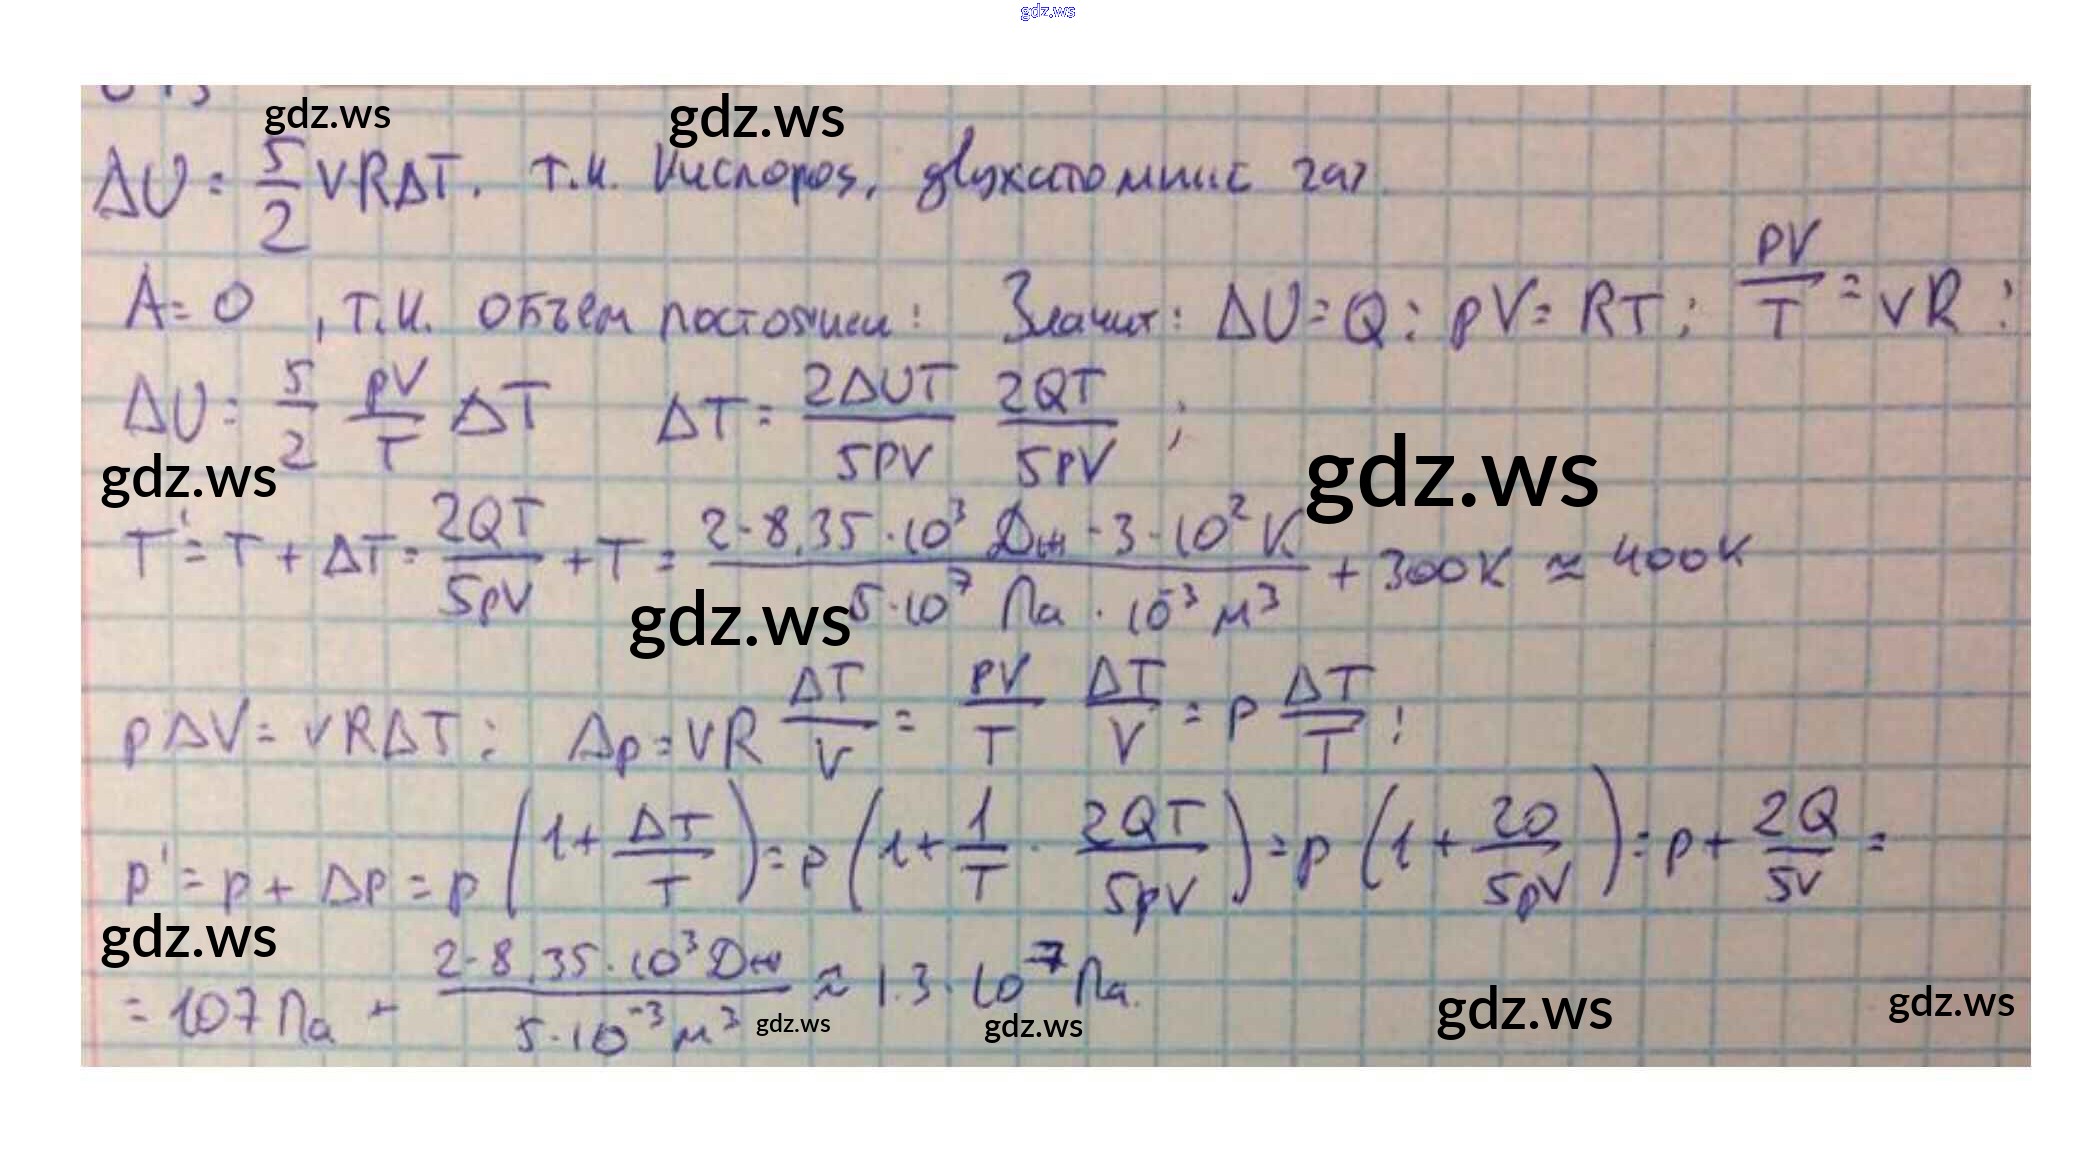 gdz.ws
gdz.ws gdz.ws
ΔU = 5/2 νRΔT. т.к. кислород, двухатомный газ.
A = 0, т.к. объем постоянен: Значит: ΔU = Q: pV = RT; pV/T = νR;
ΔU = 5/2 pV/T ΔT ΔT = 2ΔUT/5PV 2QT/5PV ;
gdz.ws gdz.ws
T' = T + ΔT = 2QT/5pV + T = 2·8,35·10³ Дж·3·10² К/5·10⁷ Па·10⁻³ м³ + 300К ≈ 400К
gdz.ws
pΔV = νRΔT; Δp = νR ΔT/V = PV/T ΔT/V = p ΔT/T ;
p' = p + Δp = p(1 + ΔT/T) = p(1 + 1/T · 2QT/5pV) = p(1 + 2Q/5pV) = p + 2Q/5V =
gdz.ws
= 107 Па + 2·8,35·10³ Дж/5·10⁻³ м³ ≈ 1.3·10⁻⁷ Па.
gdz.ws gdz.ws gdz.ws gdz.ws